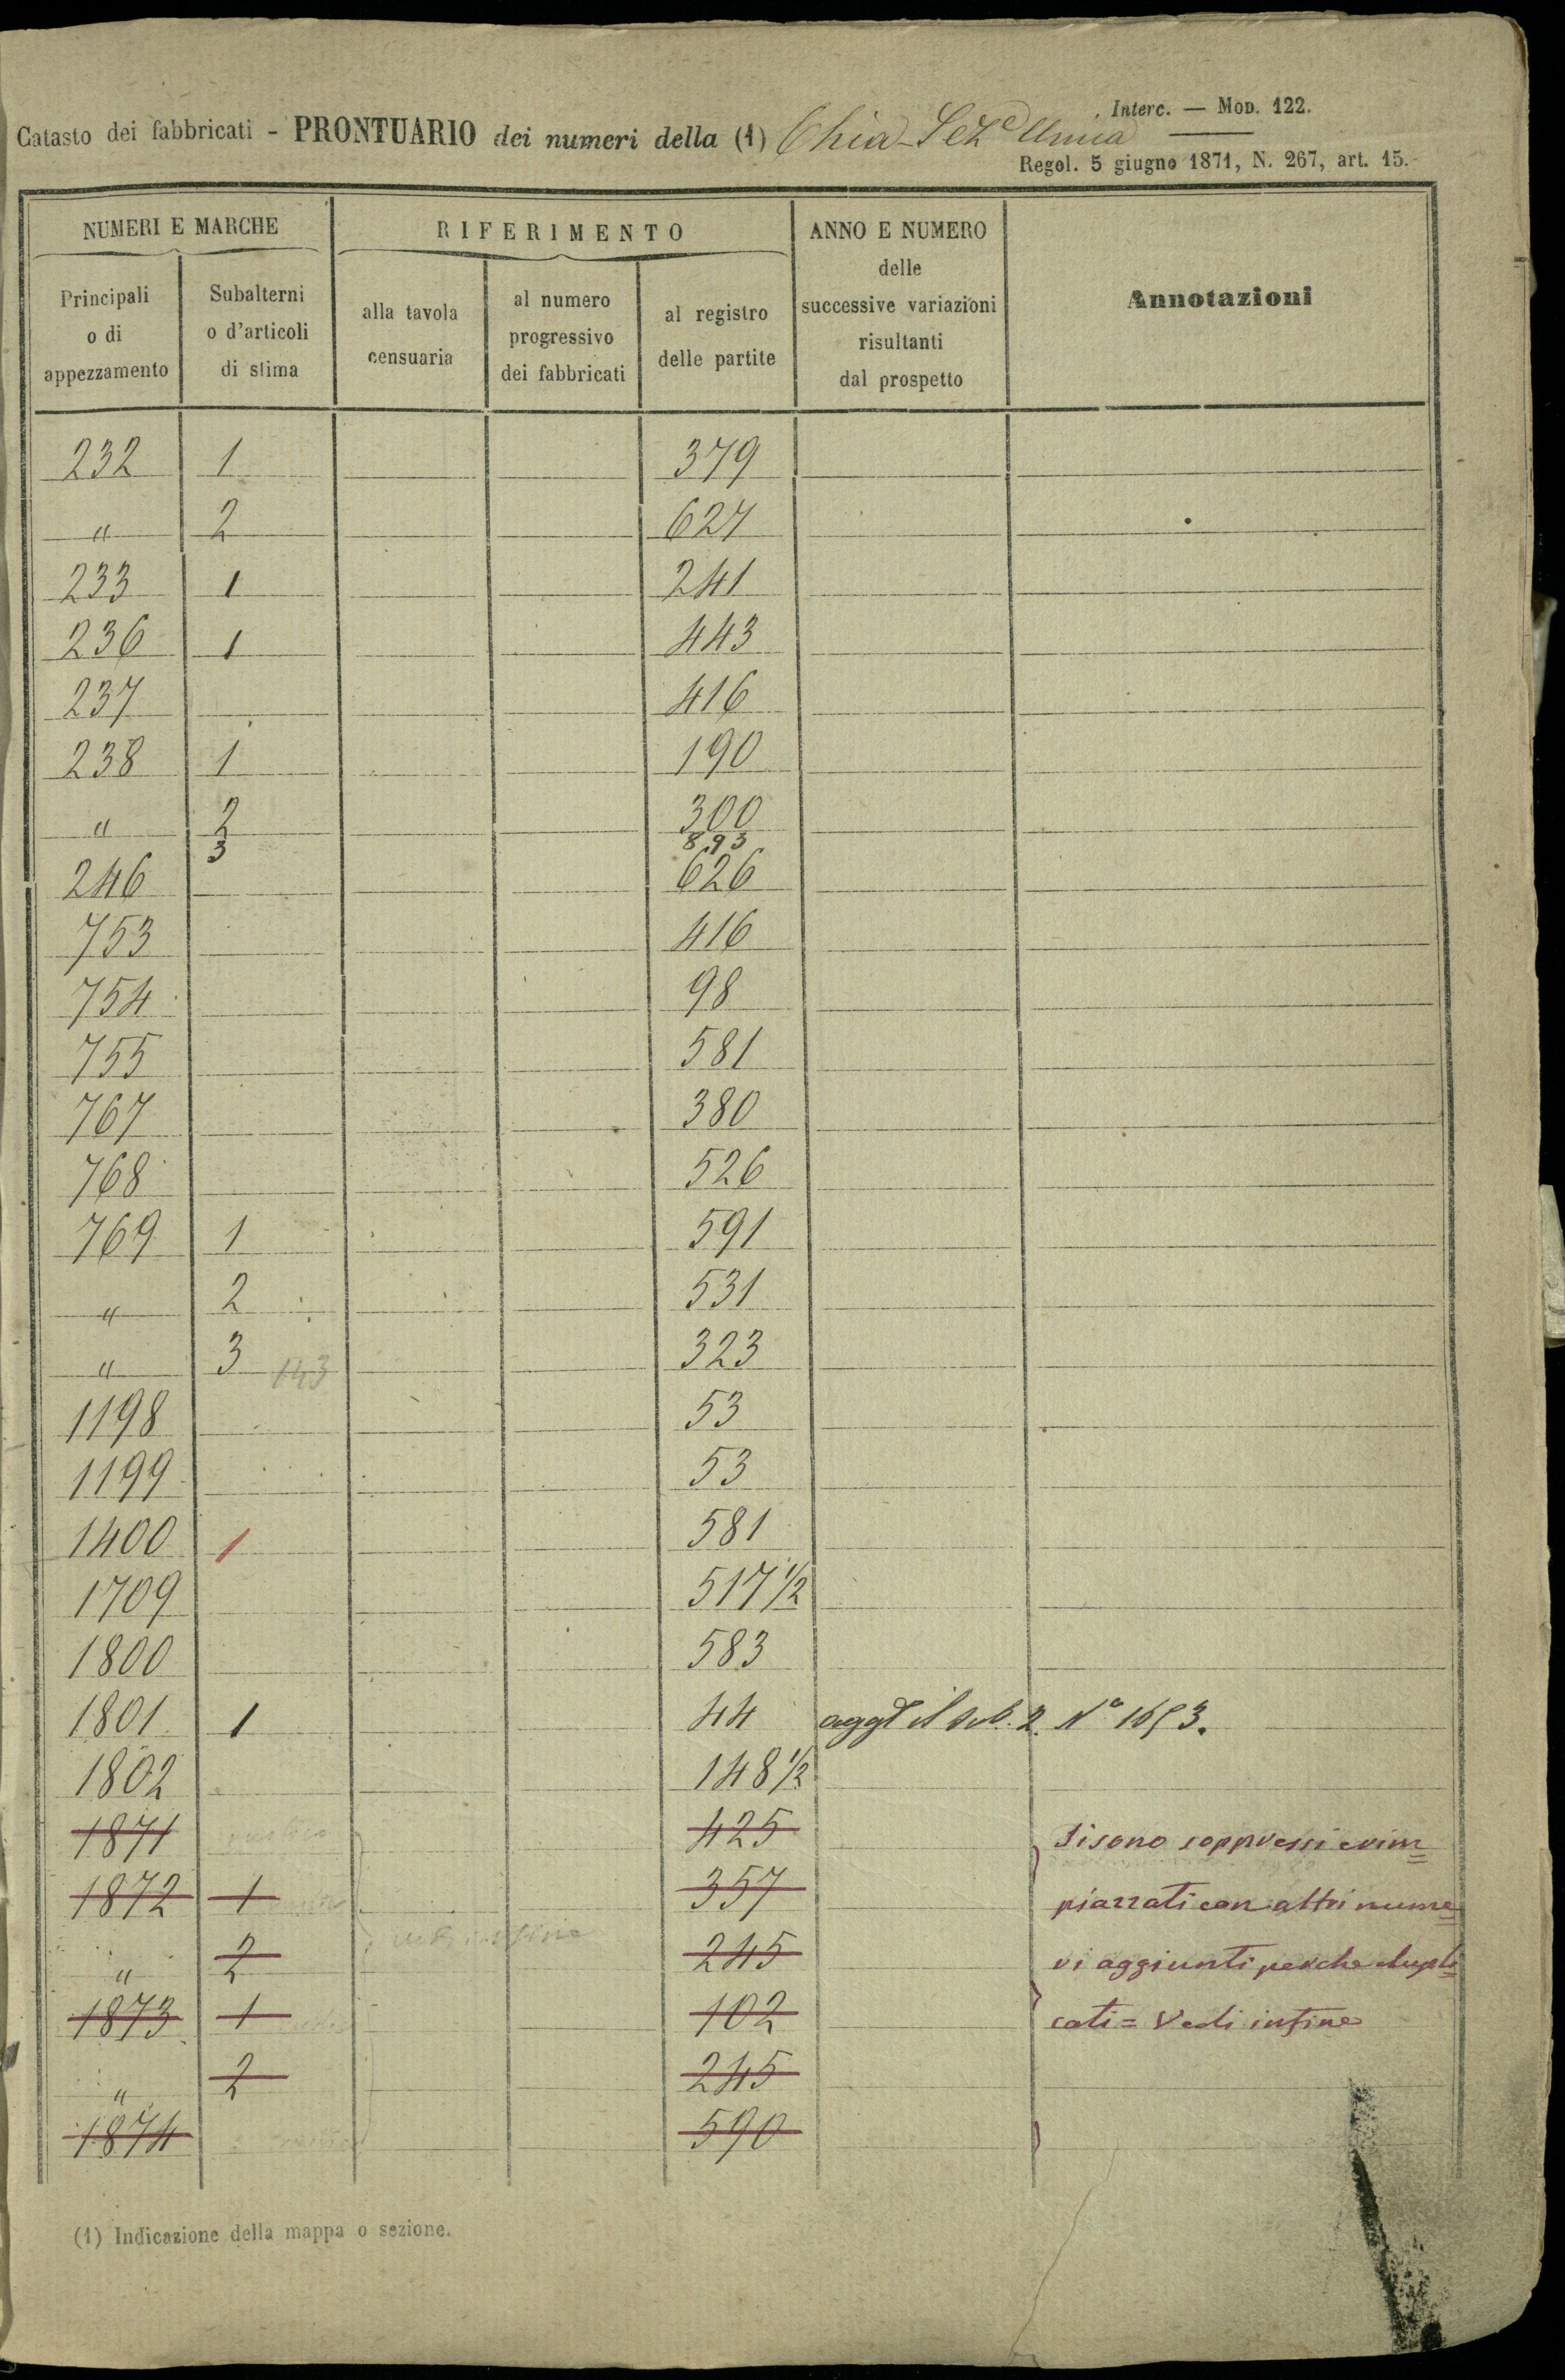 Interc. — Mod. 122.
Catasto dei fabbricati - PRONTUARIO dei numeri della (1) Chia - Sez.e Unica
Regol. 5 giugno 1871, N. 267, art. 15.
NUMERI E MARCHE
RIFERIMENTO
ANNO E NUMERO
delle
successive variazioni
risultanti
dal prospetto
Annotazioni
Principali
o di
appezzamento
Subalterni
o d'articoli
di stima
alla tavola
censuaria
al numero
progressivo
dei fabbricati
al registro
delle partite
232 1 379
" 2 627
233 1 241
236 1 443
237 416
238 1 190
" 2 300
3 893
246 626
753 416
754 98
755 581
767 380
768 526
769 1 591
" 2 531
" 3 143 323
1198 53
1199 53
1400 1 581
1709 517 1/2
1800 583
1801 1 44 agg.e il sub. 2. N° 1653.
1802 148 1/2
1871 rustico 425 Si sono soppressi e rim=
1872 1 357 piazzati con altri nume=
" 2 vedi in fine 245 ri aggiunti perche dupli=
1873 1 102 cati = Vedi infine
" 2 245
1874 590
(1) Indicazione della mappa o sezione.